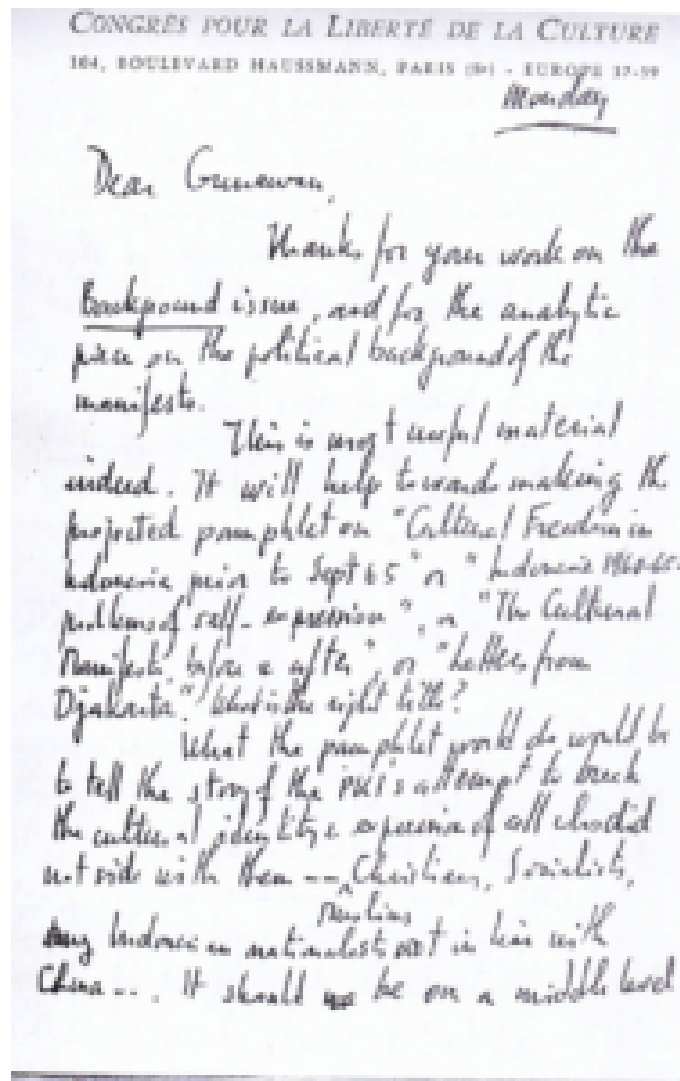 CONGRÈS POUR LA LIBERTÉ DE LA CULTURE
104, BOULEVARD HAUSSMANN, PARIS (8e) - EUROPE 57-59
Monday
Dear Gunawan,
Thanks for your work on the
Background issue, and for the analytic
piece on the political background of the
manifesto.
This is most useful material
indeed. It will help towards making the
projected pamphlet on "Cultural Freedom in
Indonesia prior to Sept 65" or "Indonesia 1960-65:
problems of self-expression", or "The Cultural
Manifesto before & after", or "Letters from
Djakarta." What is the right title?
What the pamphlet would do would be
to tell the story of the PKI's attempt to break
the cultural identity & expression of all who did
not side with them -- Christians, Socialists,
Muslims
any Indonesian nationalists not in line with
China --. It should be on a middle level